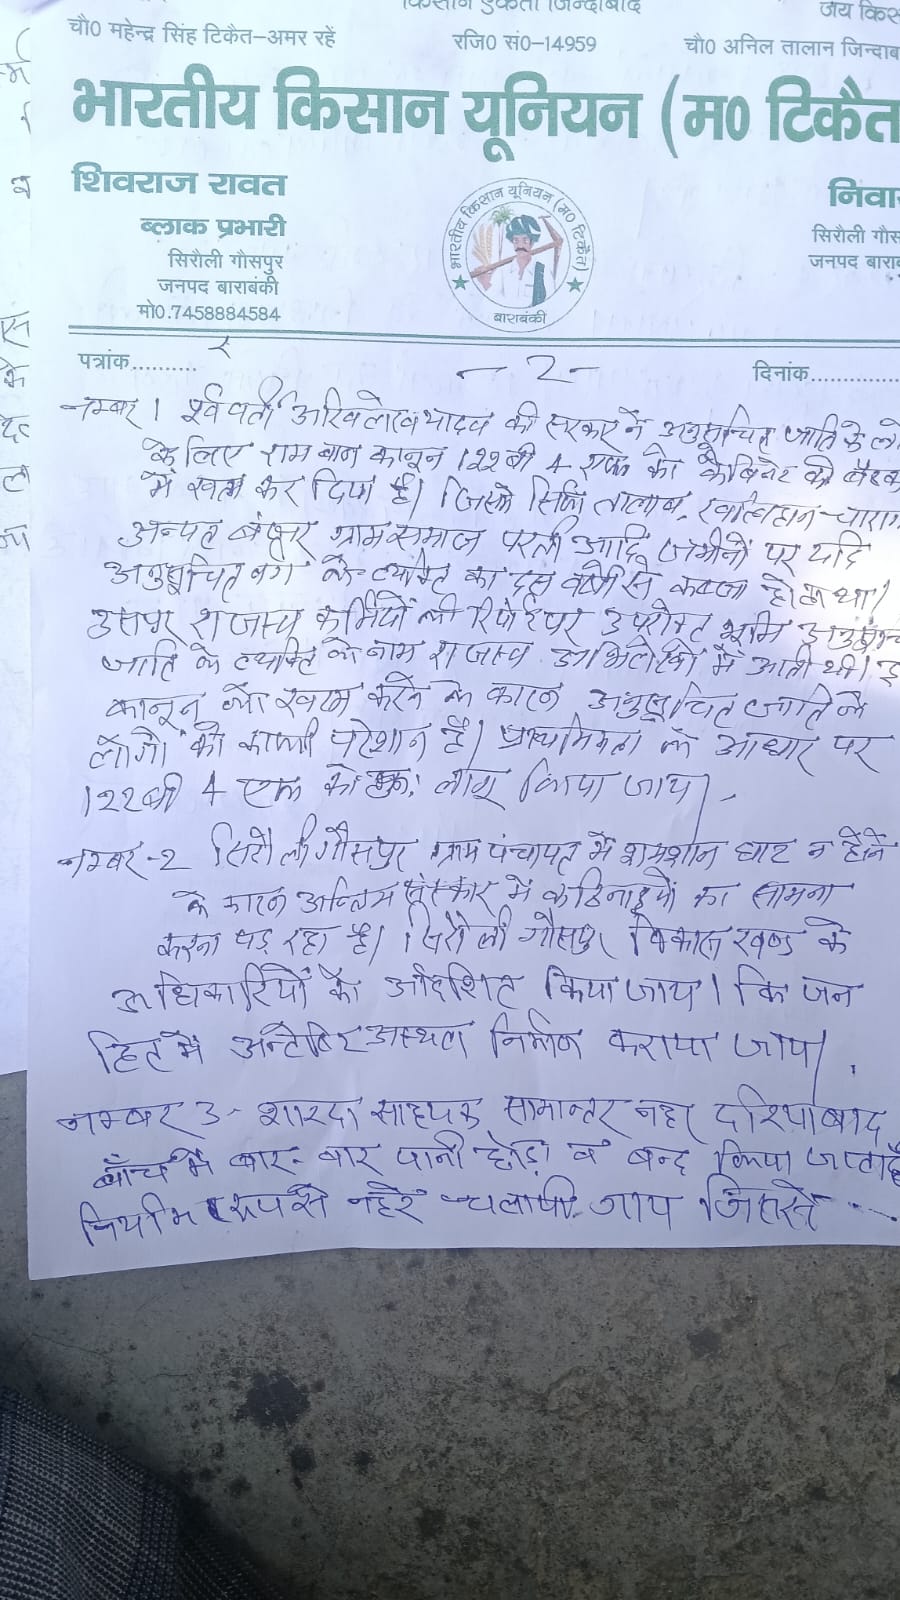 किसान एकता जिन्दाबाद
जय किस
चौ0 महेन्द्र सिंह टिकैत-अमर रहें
रजि0 सं0-14959
चौ0 अनिल तालान जिन्दाब
भारतीय किसान यूनियन (म0 टिकैत
शिवराज रावत
ब्लाक प्रभारी
सिरौली गौसपुर
जनपद बाराबंकी
मो0.7458884584
भारतीय किसान यूनियन (म0 टिकैत)
बाराबंकी
निवा
सिरौली गौस
जनपद बारा
पत्रांक..........
- 2 -
दिनांक.............
नम्बर 1 पूर्ववर्ती अखिलेश यादव की सरकार ने अनुसूचित जाति के लो
के लिए राम बान कानून 122 बी 4 एफ को कैबिनेट की बैठक
में खत्म कर दिया है। जिसमें सिर्फ तालाब, खलिहान चाराग
बंजर ग्राम समाज परती आदि जमीनों पर यदि
अनुसूचित वर्ग के व्यक्ति का दस वर्षो से कब्जा होता था।
उसपर राजस्व कर्मियों की रिपोर्ट पर उपरोक्त भूमि अनुसूचि
जाति के व्यक्ति के नाम राजस्व अभिलेखों में आती थी। इ
कानून को खत्म करने के कारन अनुसूचित जाति के
लोगो को काफी परेशान है। प्राथमिकता के आधार पर
122 बी 4 एफ को पुन: लागू किया जाय।
नम्बर-2 सिरौली गौसपुर ग्राम पंचायत में शमशान घाट न होने
के कारन अन्तिम संस्कार में कठिनाइयों का सामना
करना पड़ रहा है। सिरौली गौसपुर विकास खण्ड के
अधिकारियों को आदेशित किया जाय। कि जन
हित में अन्टेष्टि अस्थल निर्माण कराया जाय।
नम्बर 3- शारदा सहायक सामान्तर नहर दरियाबाद
ब्राँच में बार-बार पानी छोड़ा व बन्द किया जाता है
नियमित रूप से नहरें चलायी जाय जिससे ...